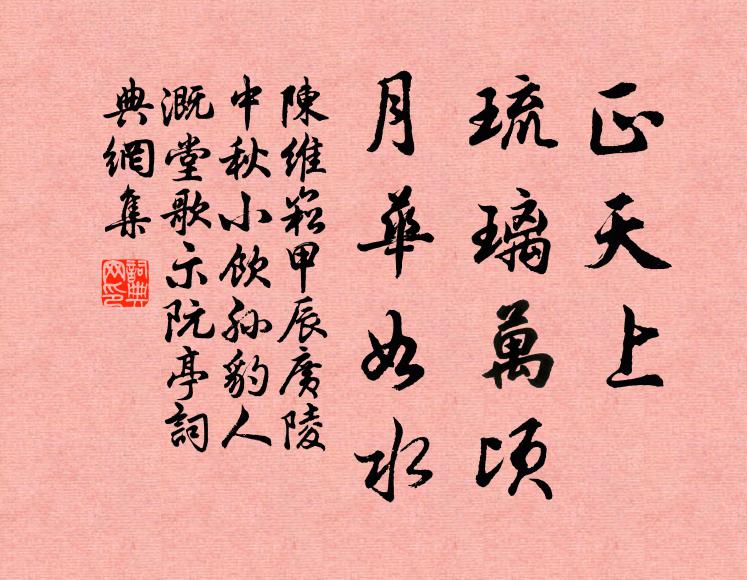 正天上
琉璃萬頃
月華如水
陳維崧甲辰廣陵
中秋小飲孫豹人
溉堂歌示阮亭詞
典網集
詞典
网印